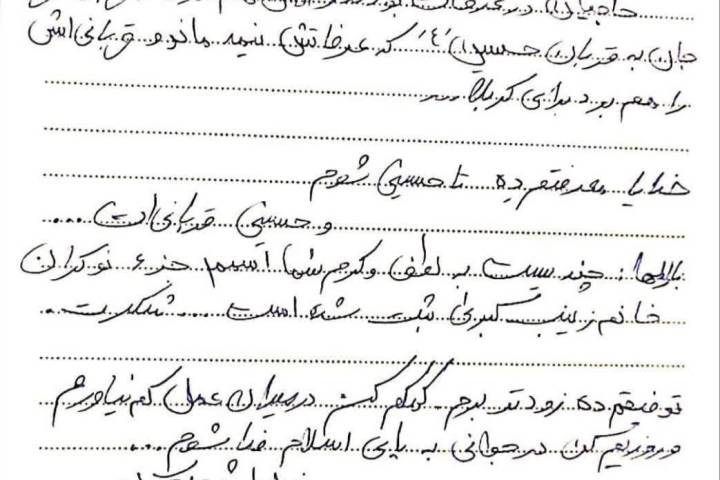 حاجیان در عرفات
جان به قربان حسین (ع) که عرفاتش نیمه ماند و قربانی‌اش
را هم برد برای کربلا...
خدایا معرفتم ده تا حسینی شوم
و حسینی قربانی‌ات ....
بارالها: چندیست به لطف و کرم شما اسمم جزء نوکران
خانم زینب کبری ثبت شده است ... شکرت..
توفیقم ده زودتر بروم. کمکم کن در میدان عمل کم نیاورم
و روزیم کن در جوانی به پای اسلام فدا شوم ...